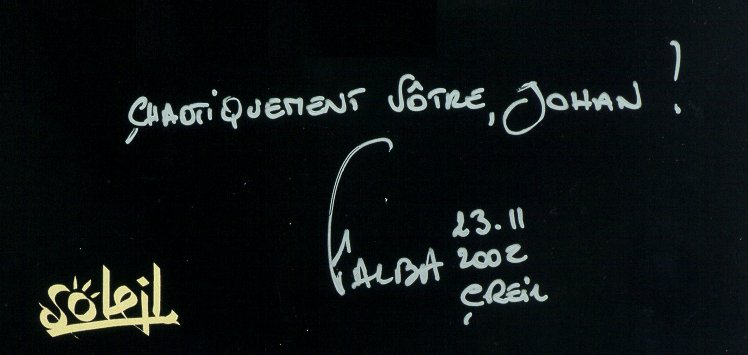 ÇHAOTIQUEMENT VÔTRE, JOHAN !
GALBA
23.11
2002
ÇREIL
Soleil